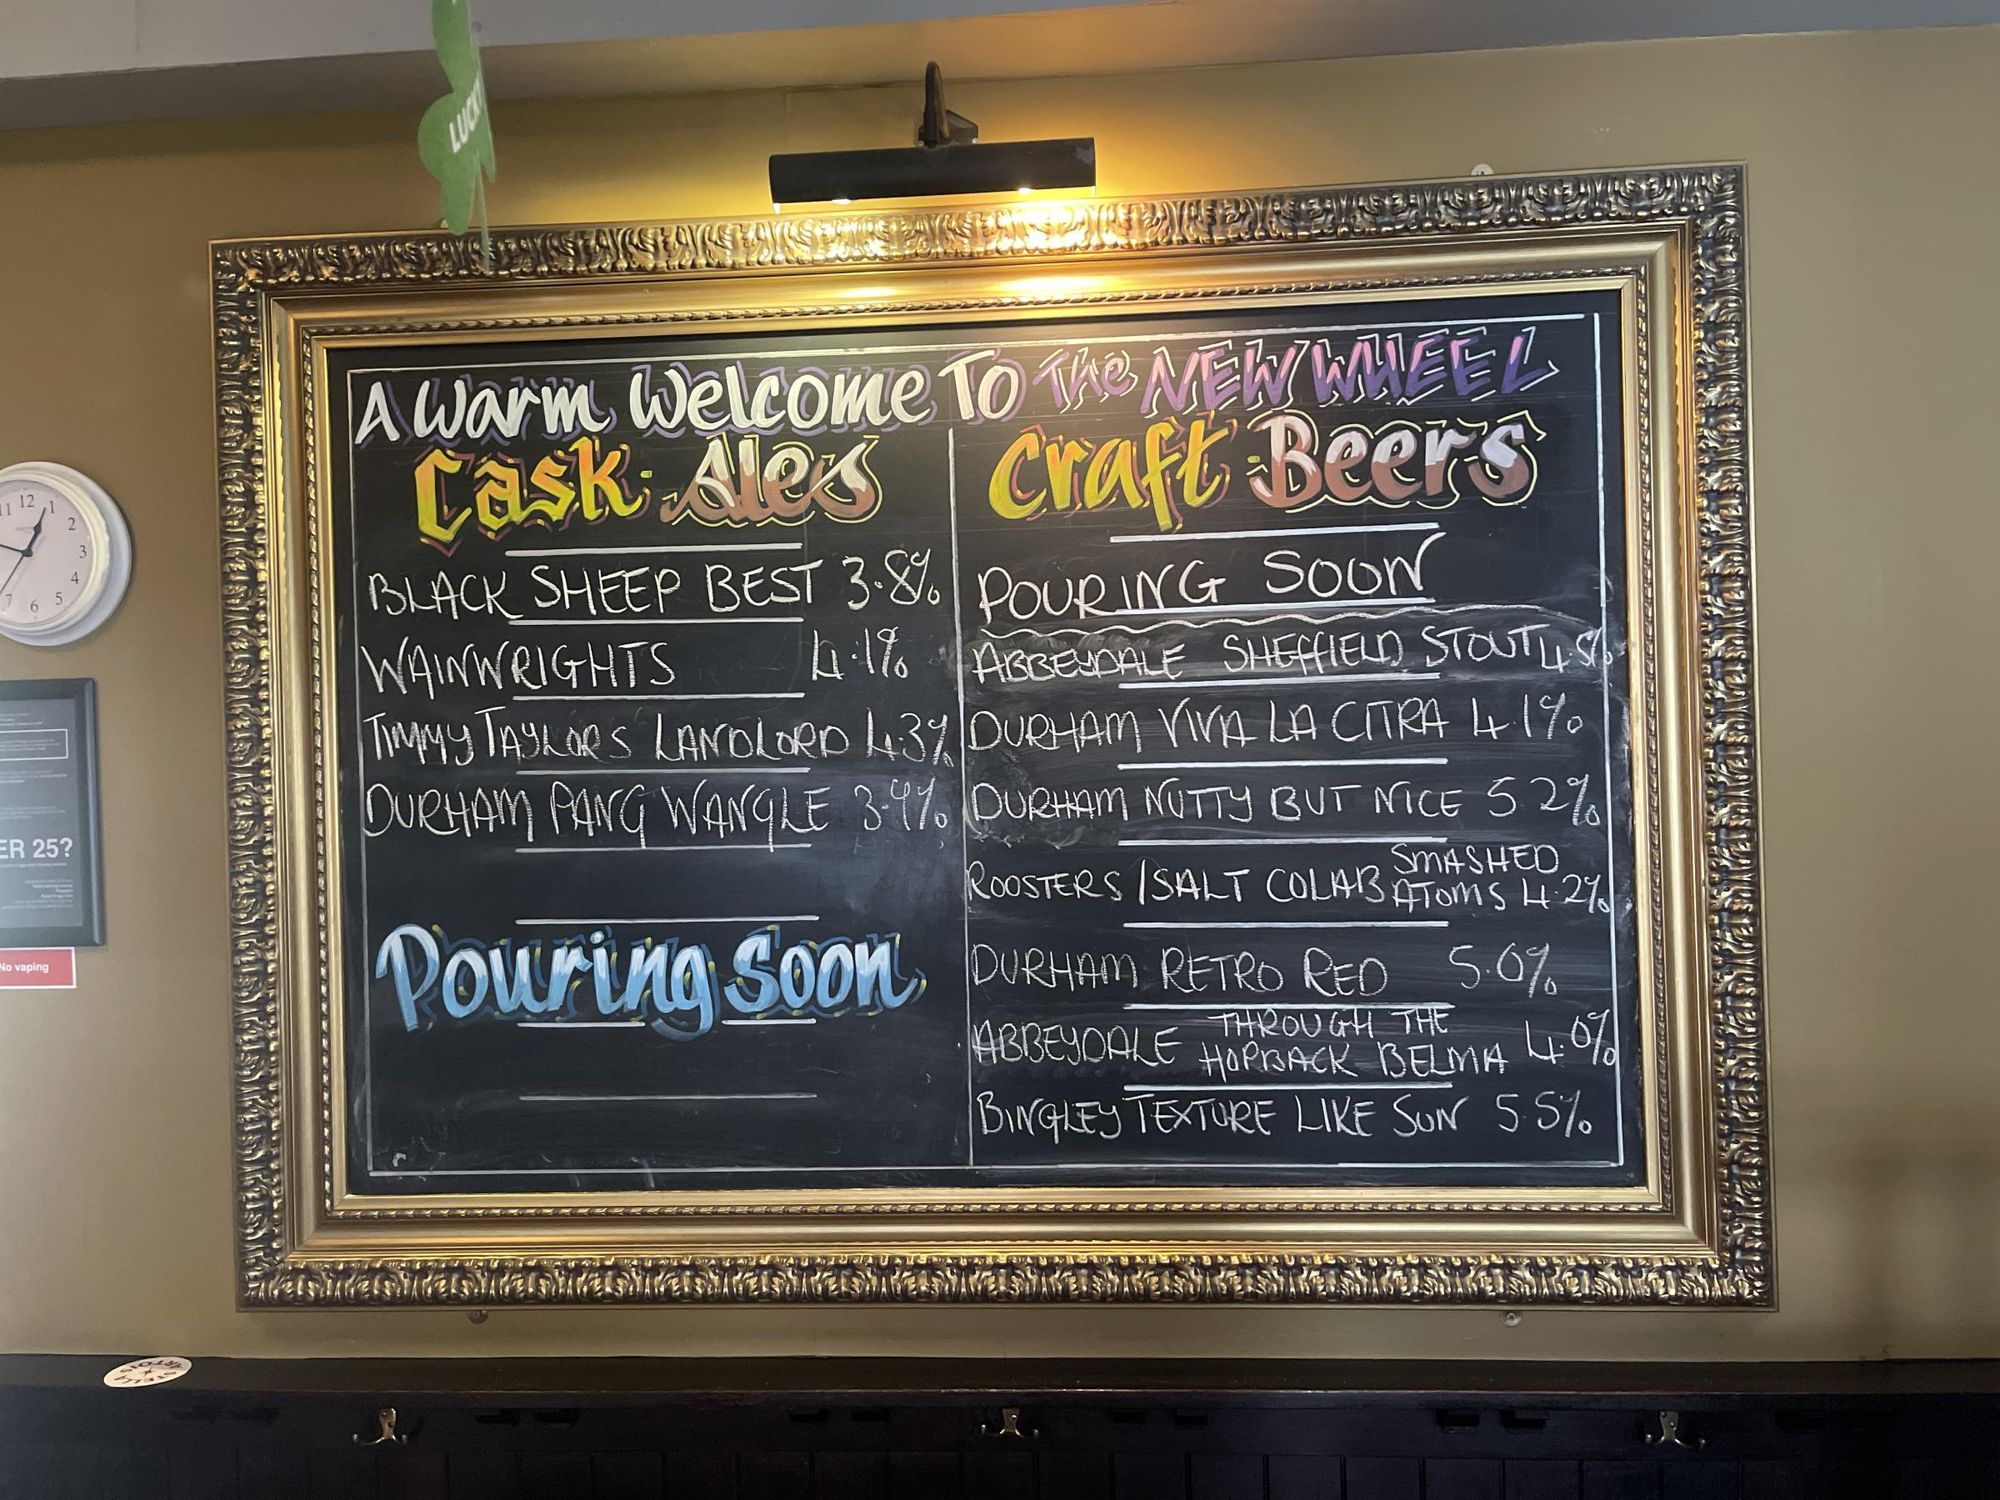 LUCKY
A Warm Welcome To The NEW WHEEL
Cask Ales
BLACK SHEEP BEST 3.8%
WAINWRIGHTS 4.1%
TIMMY TAYLORS LANDLORD 4.3%
DURHAM PANG WANGLE 3.9%
Pouring Soon
Craft Beers
POURING SOON
ABBEYDALE SHEFFIELD STOUT 4.5%
DURHAM VIVA LA CITRA 4.1%
DURHAM NUTTY BUT NICE 5.2%
ROOSTERS / SALT COLAB SMASHED
ATOMS 4.2%
DURHAM RETRO RED 5.0%
ABBEYDALE THROUGH THE
HOPBACK BELMA 4.0%
BINGLEY TEXTURE LIKE SUN 5.5%
11 12 1
2
3
4
5
6
7
ER 25?
No vaping
STELLA ARTOIS